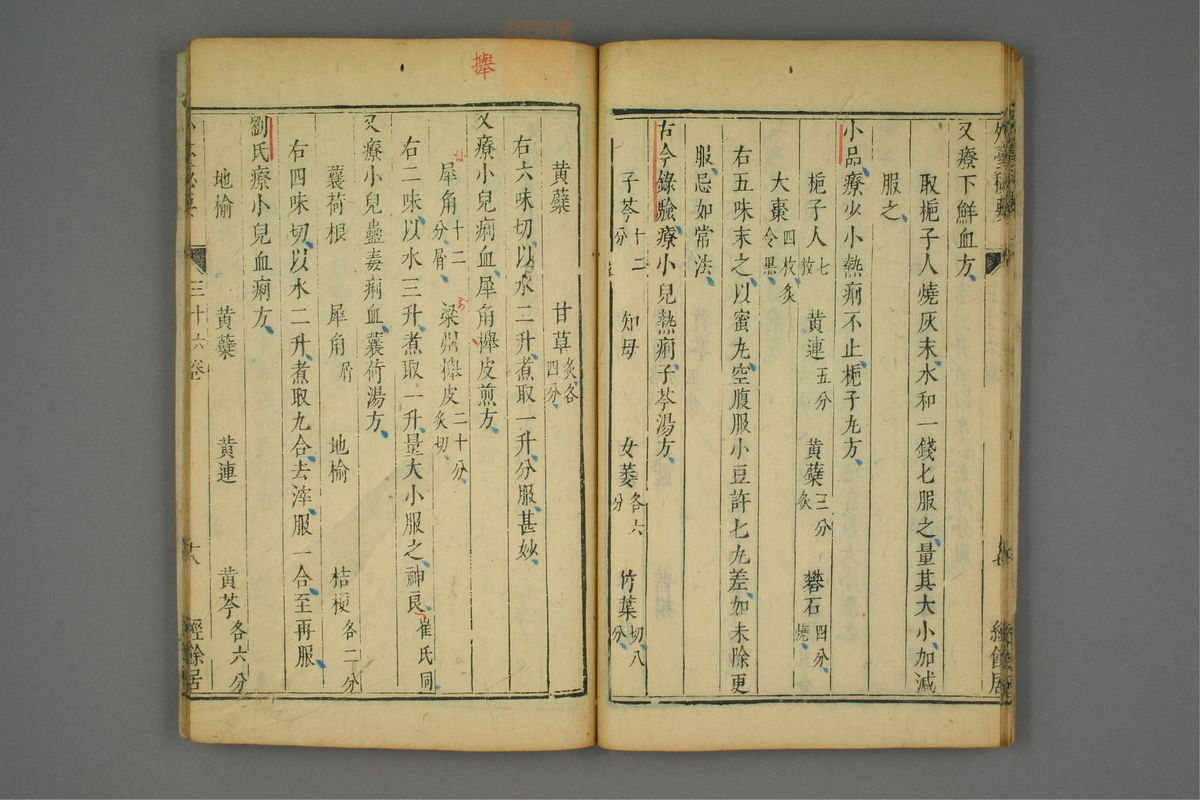 又療下鮮血方
取梔子人燒灰末水和一錢匕服之量其大小加減
服之
小品療少小熱痢不止梔子丸方
梔子人七枚 黃連五分 黃蘗三分炙 礬石四分燒
大棗四枚炙令黑
右五味末之以蜜丸空腹服小豆許七丸差如未除更
服忌如常法
古今錄驗療小兒熱痢子芩湯方
子芩十二分 知母 女萎各六分 竹葉切八分
黃蘗 甘草炙各四分
右六味切以水二升煮取一升分服甚妙
又療小兒痢血犀角櫸皮煎方
犀角十二分屑 梁州櫸皮二十分炙切
右二味以水三升煮取一升量大小服之神良崔氏同
又療小兒蠱毒痢血蘘荷湯方
蘘荷根 犀角屑 地榆 桔梗各二分
右四味切以水二升煮取九合去滓服一合至再服
劉氏療小兒血痢方
地榆 黃蘗 黃連 黃芩各六分
三十六卷 十八 經餘居
櫸